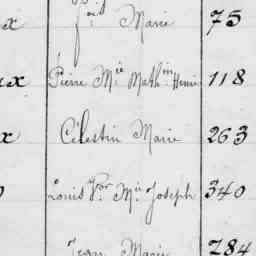 x fois Marie 75
ex Pierre Mie Mathin Henri 118
x Célestin Marie 263
Louis Vor Mie Joseph 340
Jean Marie 284